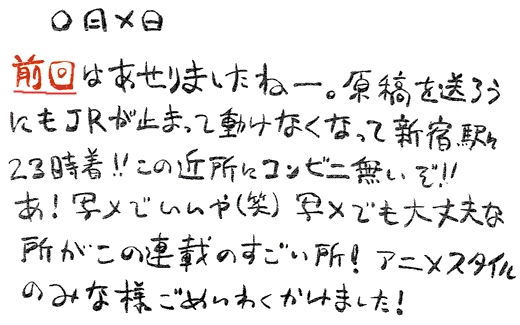 〇日×日
前回はあせりましたねー。原稿を送ろう
にもJRが止まって動けなくなって新宿駅を
23時着!!この近所にコンビニ無いぞ!!
あ!写メでいいや(笑)写メでも大丈夫な
所がこの連載のすごい所!アニメスタイル
のみな様ごめいわくかけました!